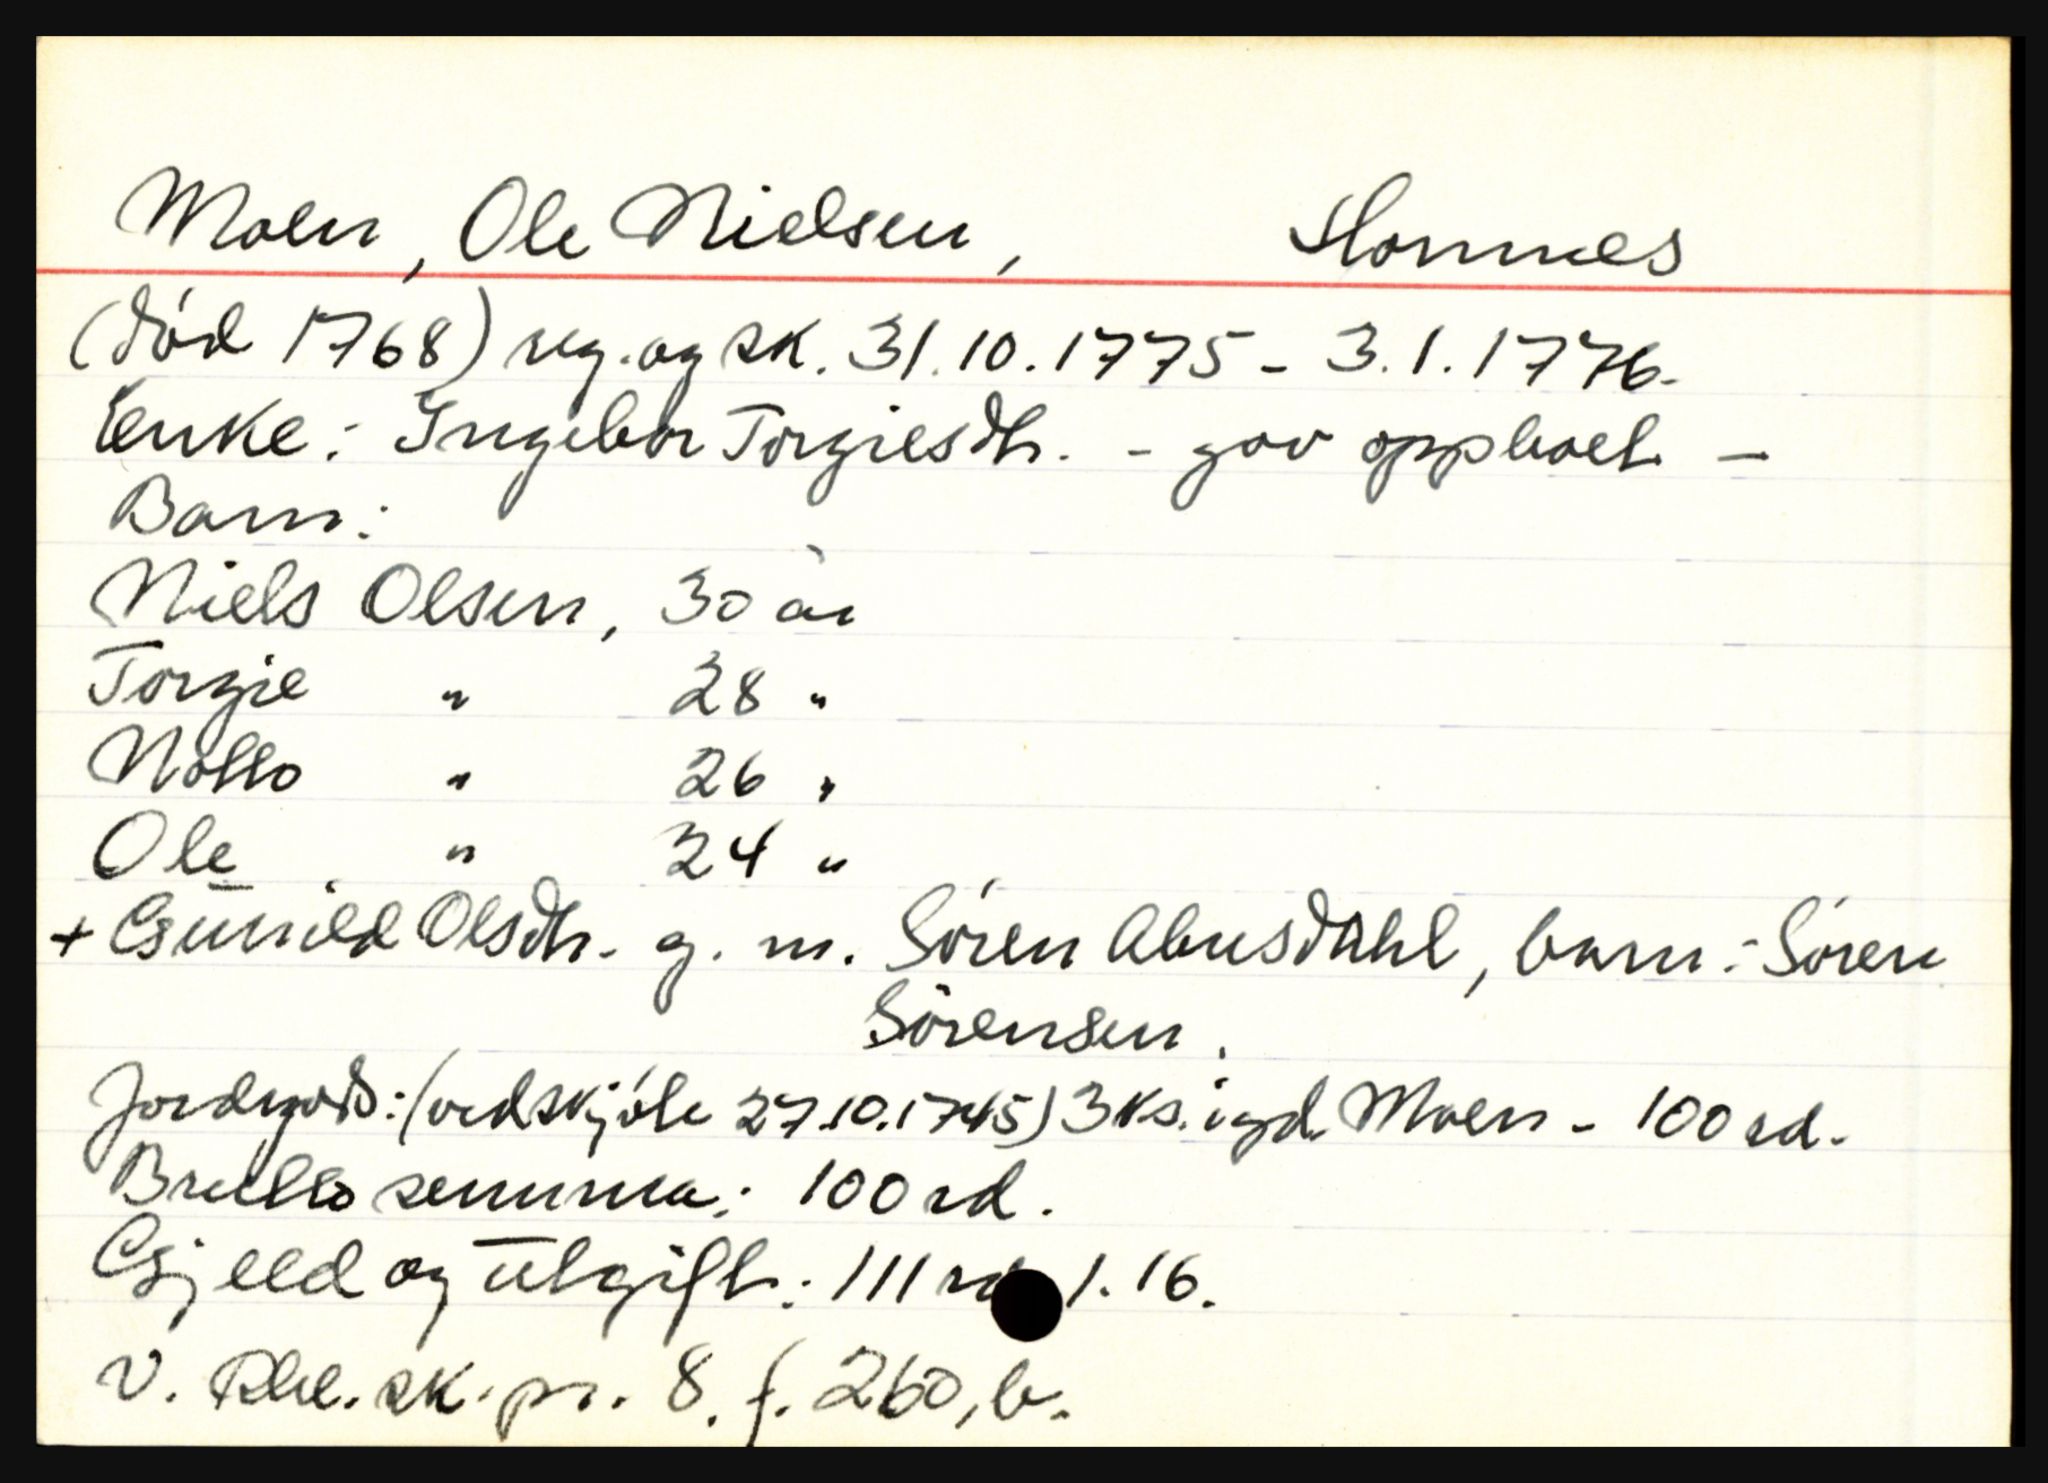 Moen, Ole Nielsen, Hornnes
(död 1768) reg. og sk. 31.10.1775 - 3.1.1776.
Enke: Ingebor Torgiesdtr. - gav oppboet -
Barn:
Niels Olsen, 30 år
Torgie " 28 "
Notto " 26 "
Ole " 24 "
+ Gunild Olsdtr. g. m. Sören Abusdahl, barn: Sören
Sörensen.
Jordgods: (ved skjöte 27.10.1745) 3 ks. i gd. Moen - 100 rd.
Brutto summa: 100 rd.
Gjeld og utgift: 111 rd 1. 16.
V. Rbl. sk. pr. 8. f. 260, b.